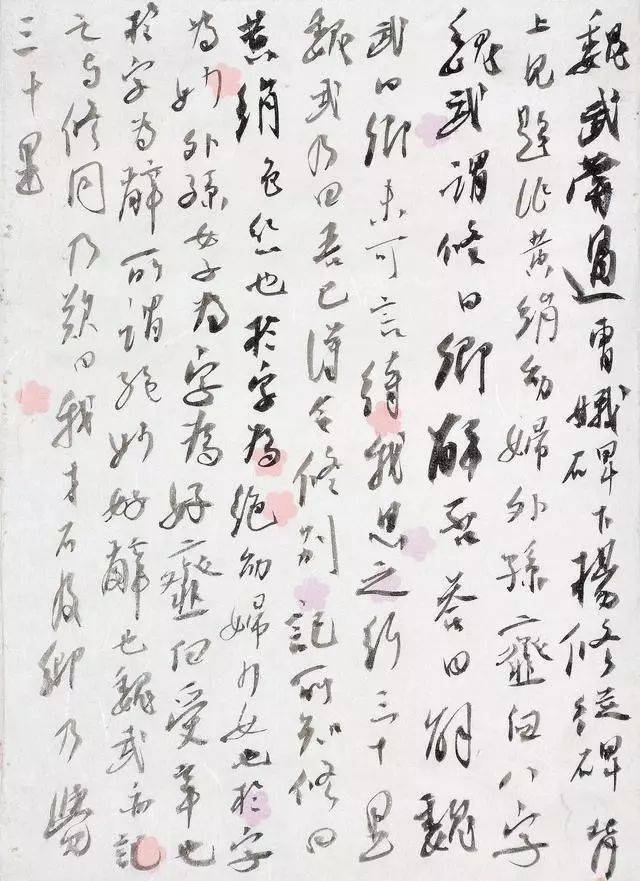 魏武嘗過曹娥碑下楊修從碑背
上見題作黃絹幼婦外孫虀臼八字
魏武謂修曰卿解否答曰解魏
武曰卿未可言待我思之行三十里
魏武乃曰吾已得令修別記所知修曰
黃絹色絲也於字為絕幼婦少女也於字
為妙外孫女子也於字為好虀臼受辛也
於字為辭所謂絕妙好辭也魏武亦記
之与修同乃歎曰我才不及卿乃覺
三十里